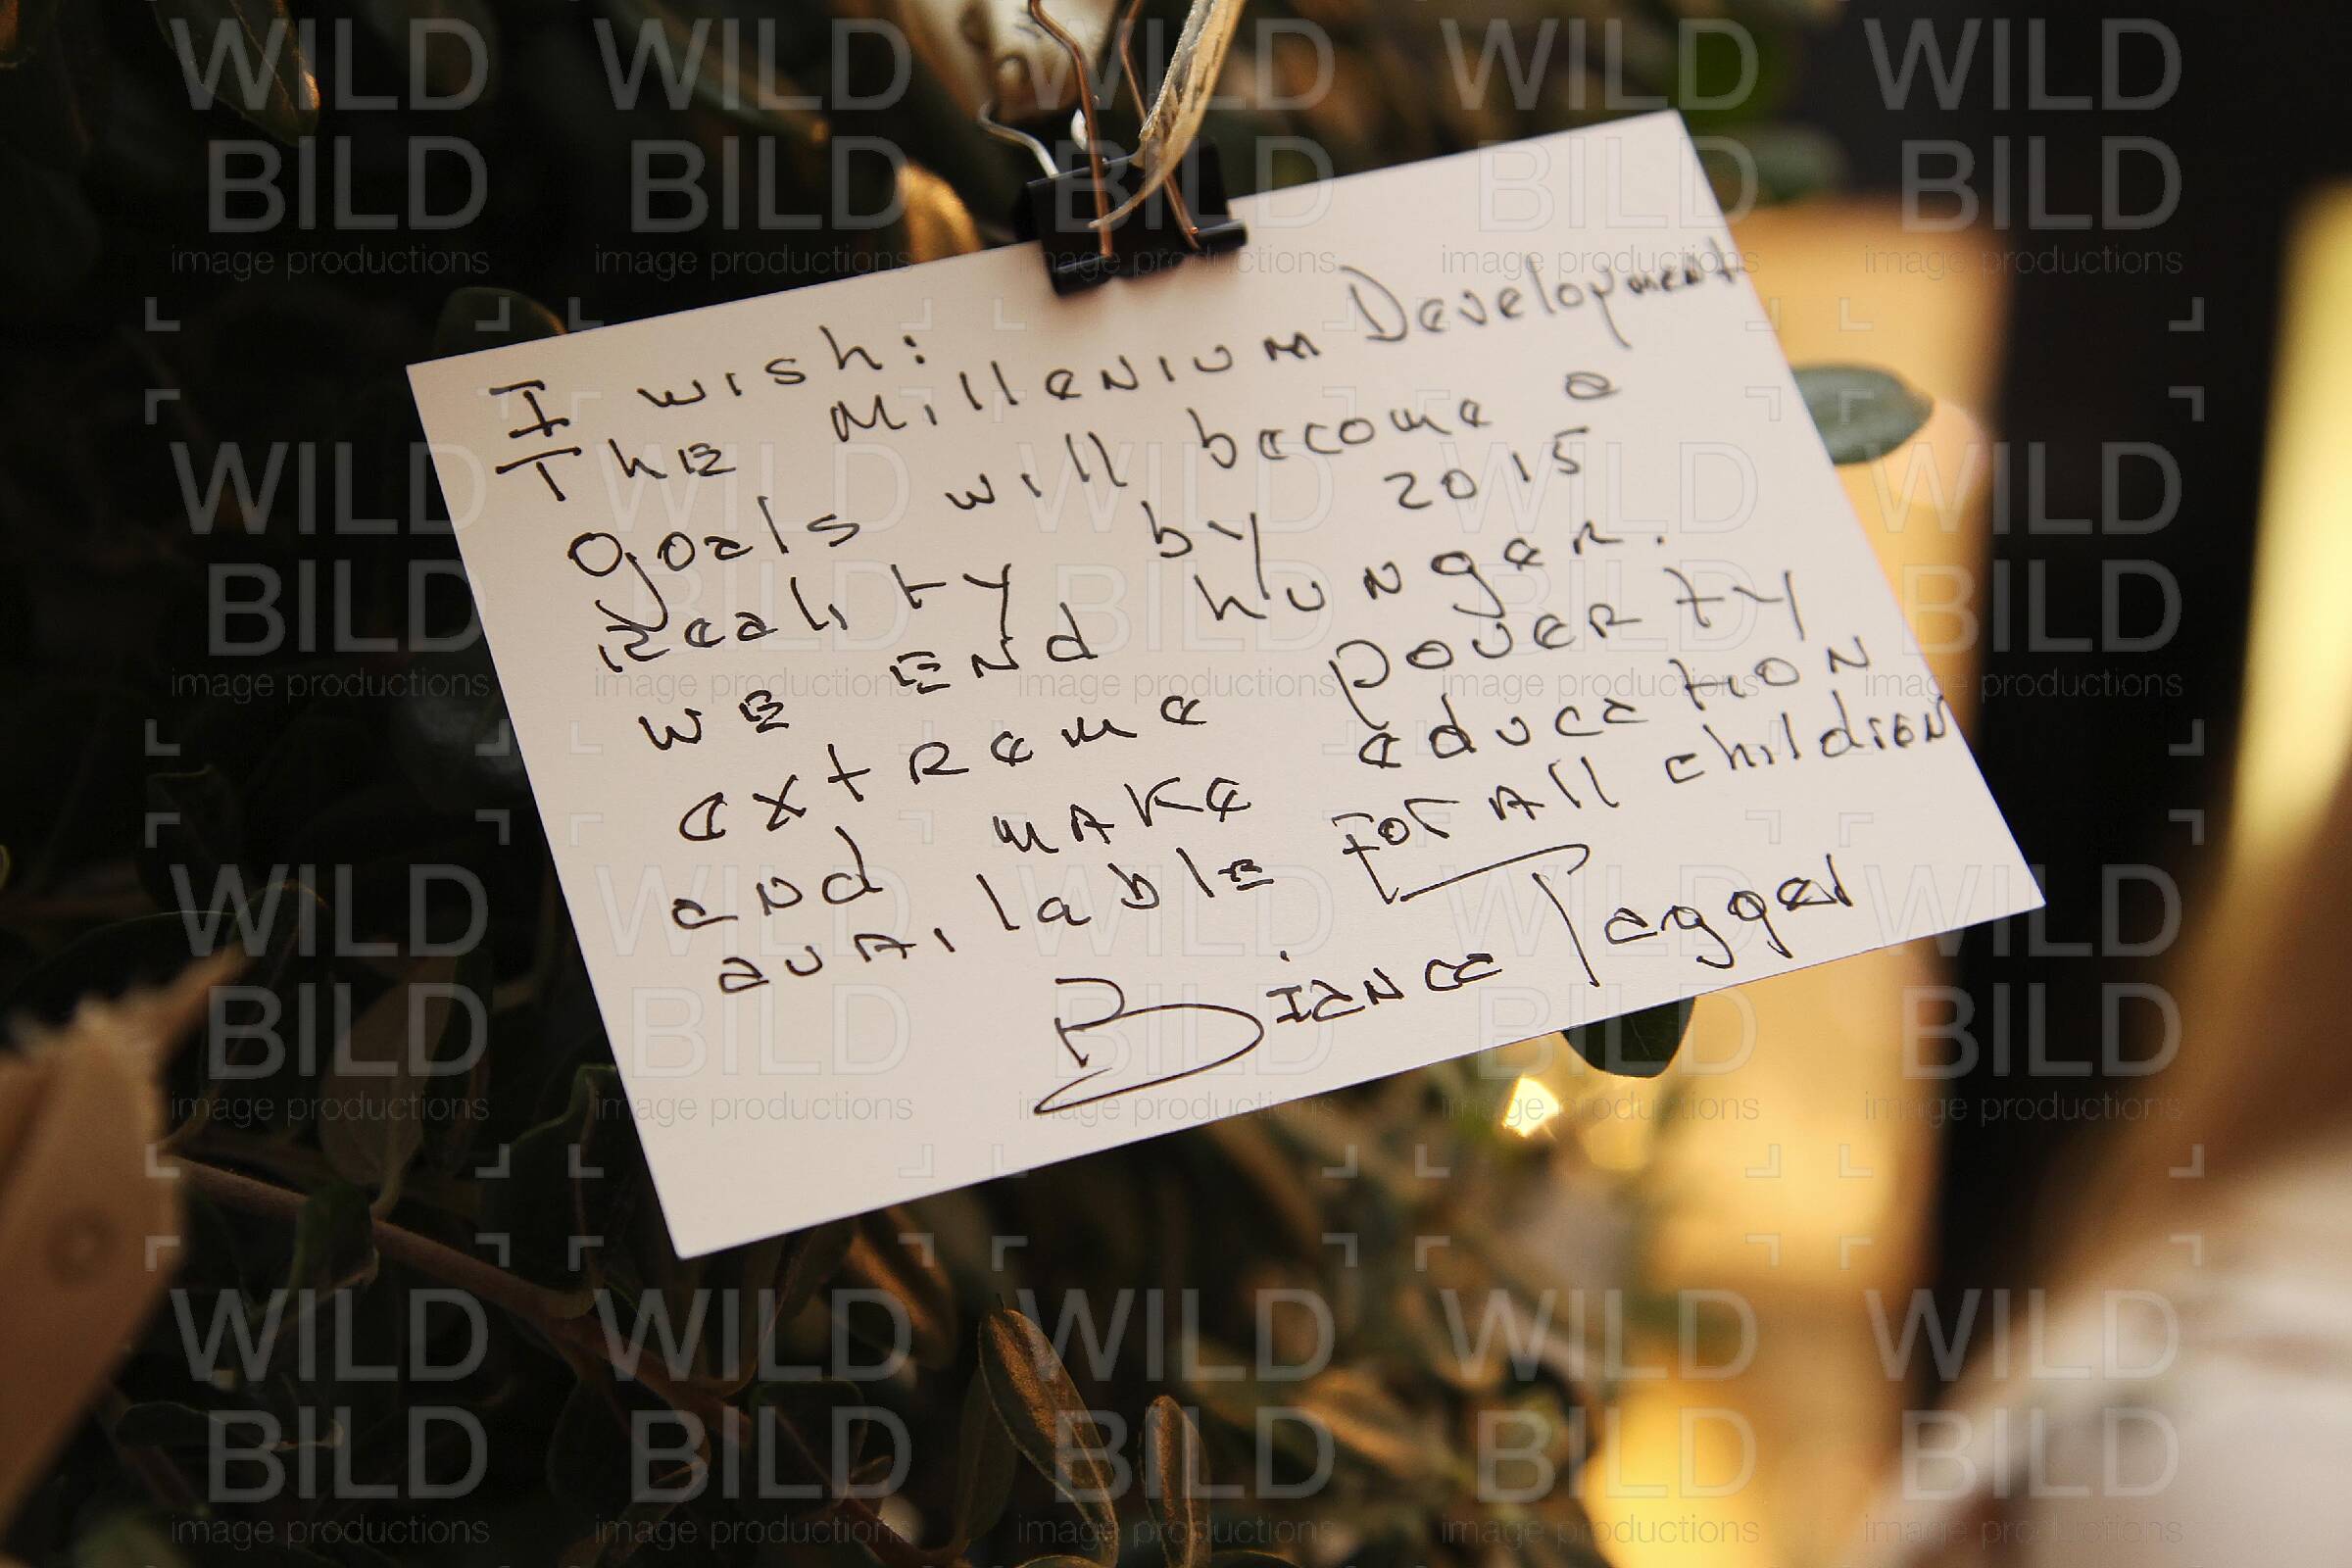 I wish:
The Millenium Development
goals will become a
Reality by 2015
we End hunger.
extreme poverty
and make education
available for All children
Bianca Jagger
WILD
BILD
image productions